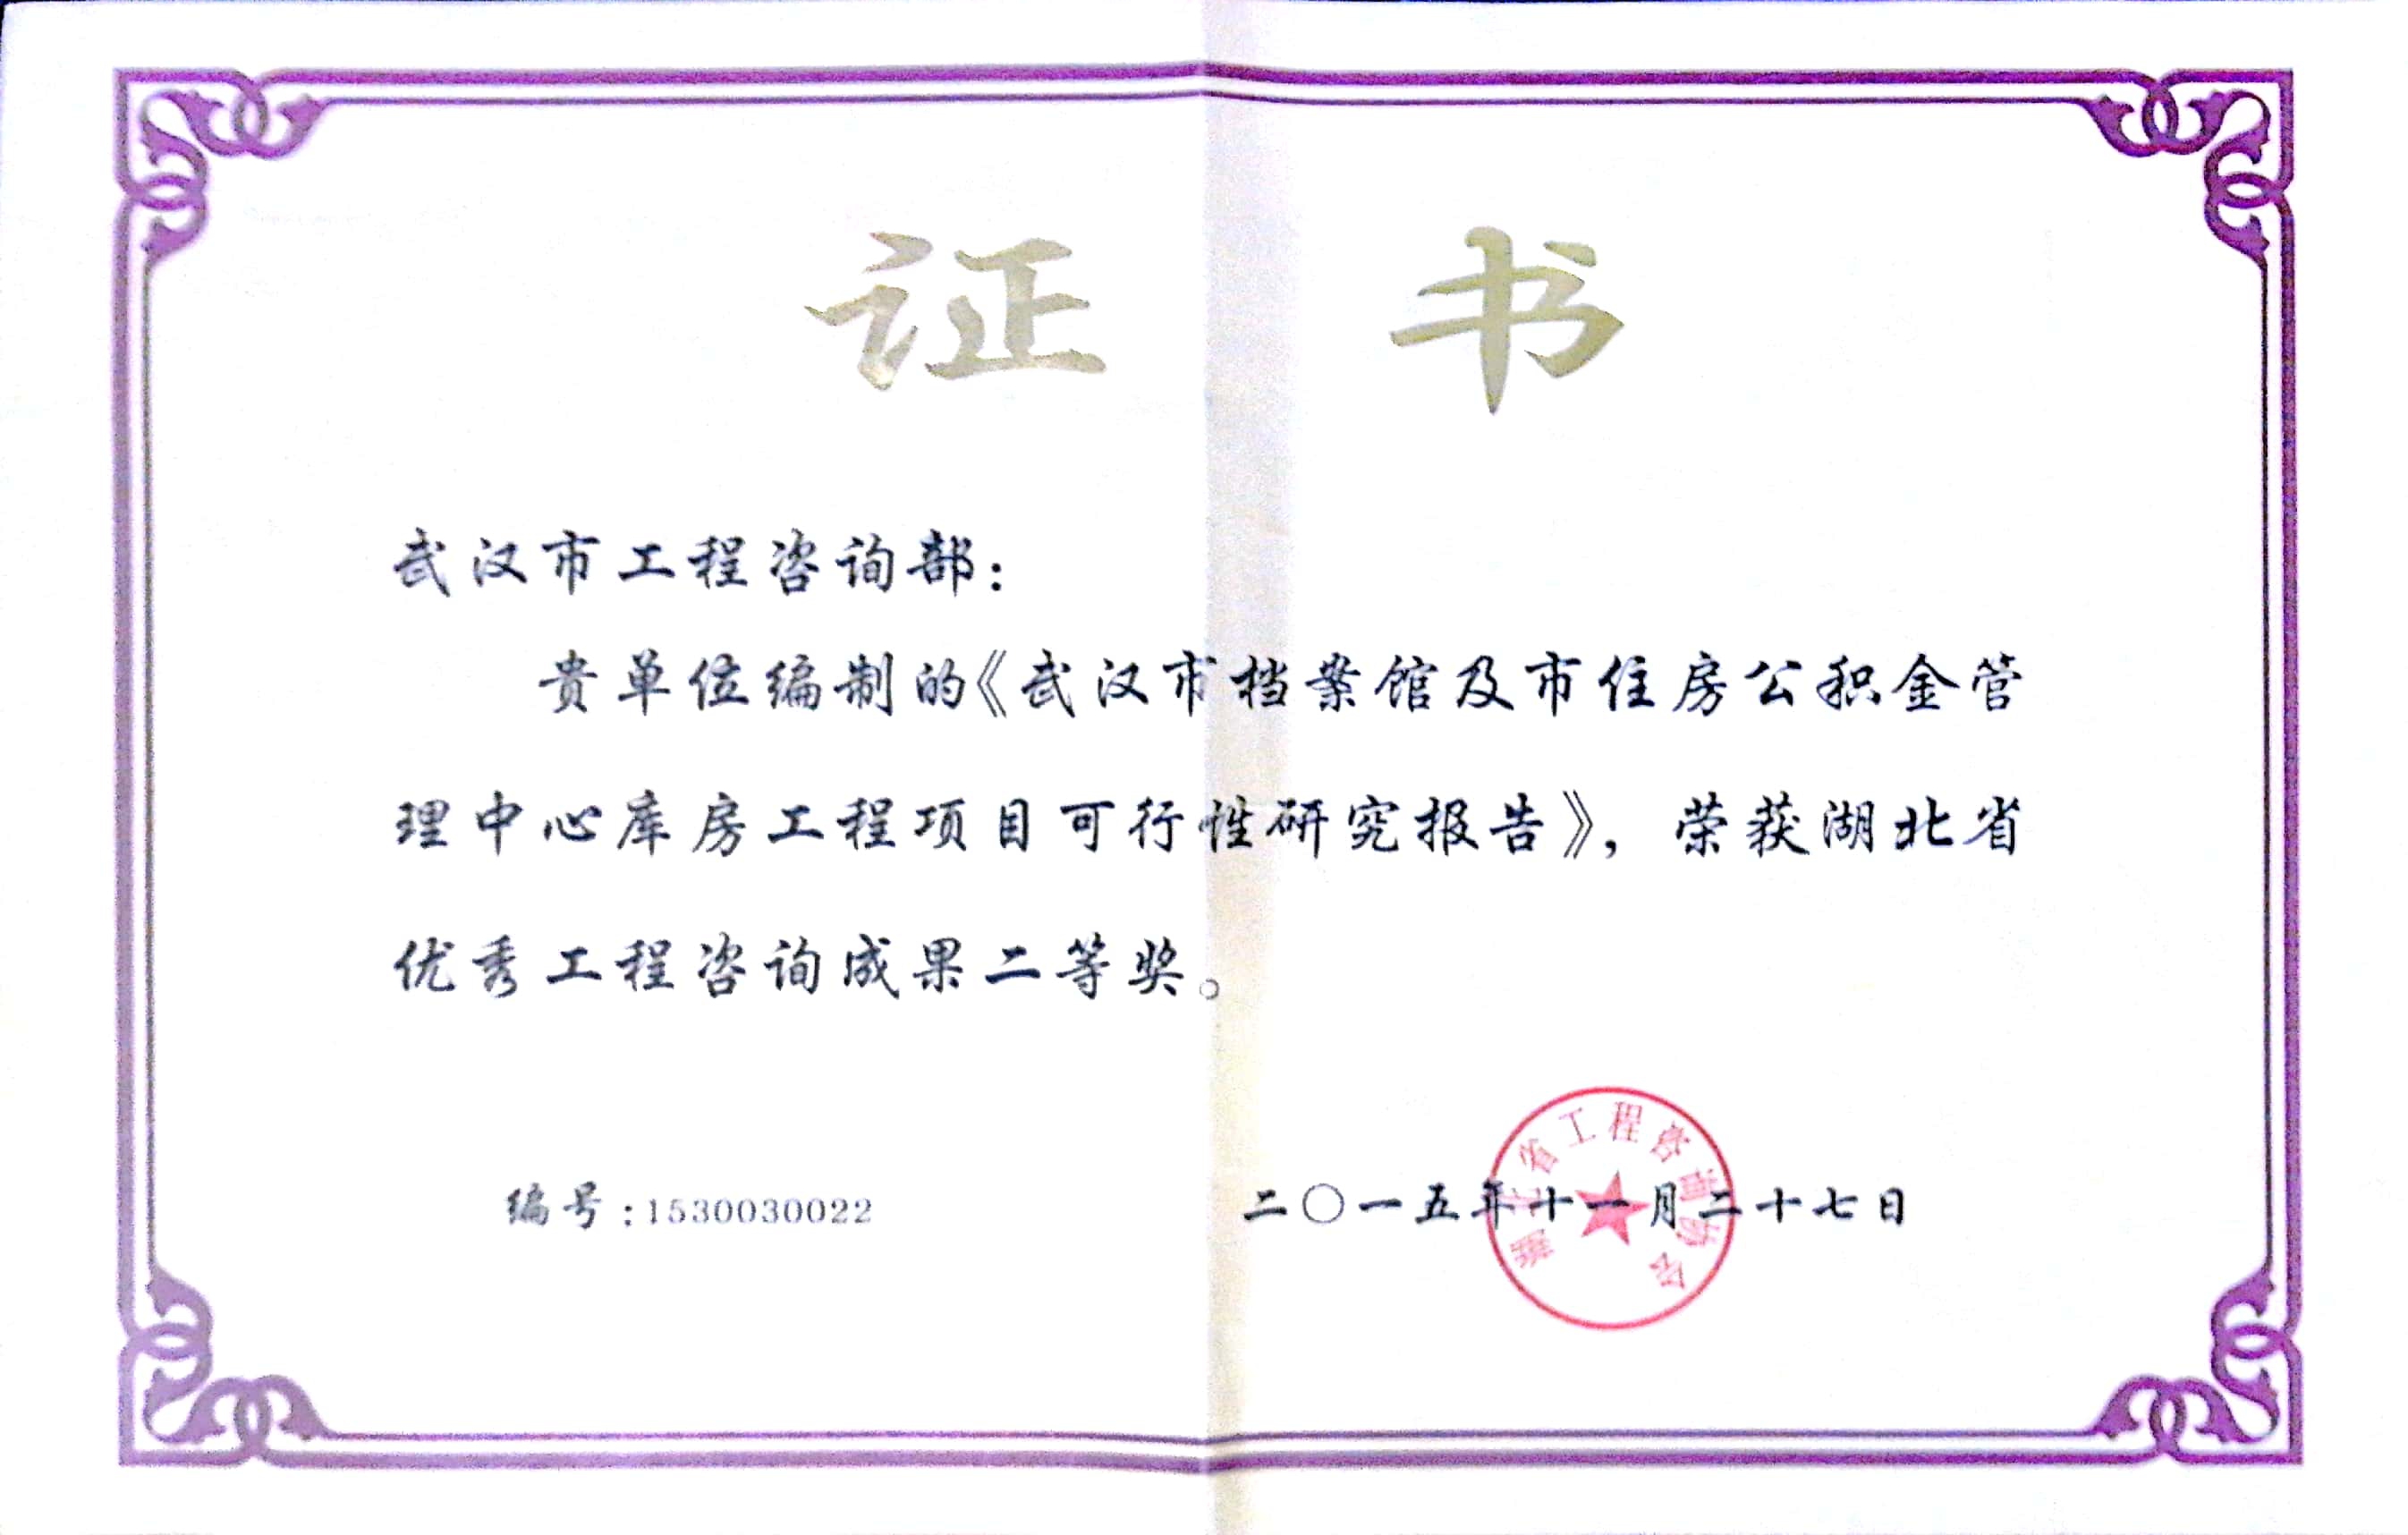 证 书
武汉市工程咨询部：
贵单位编制的《武汉市档案馆及市住房公积金管
理中心库房工程项目可行性研究报告》，荣获湖北省
优秀工程咨询成果二等奖。
编号：1530030022
二〇一五年十一月二十七日
湖北省工程咨询协会